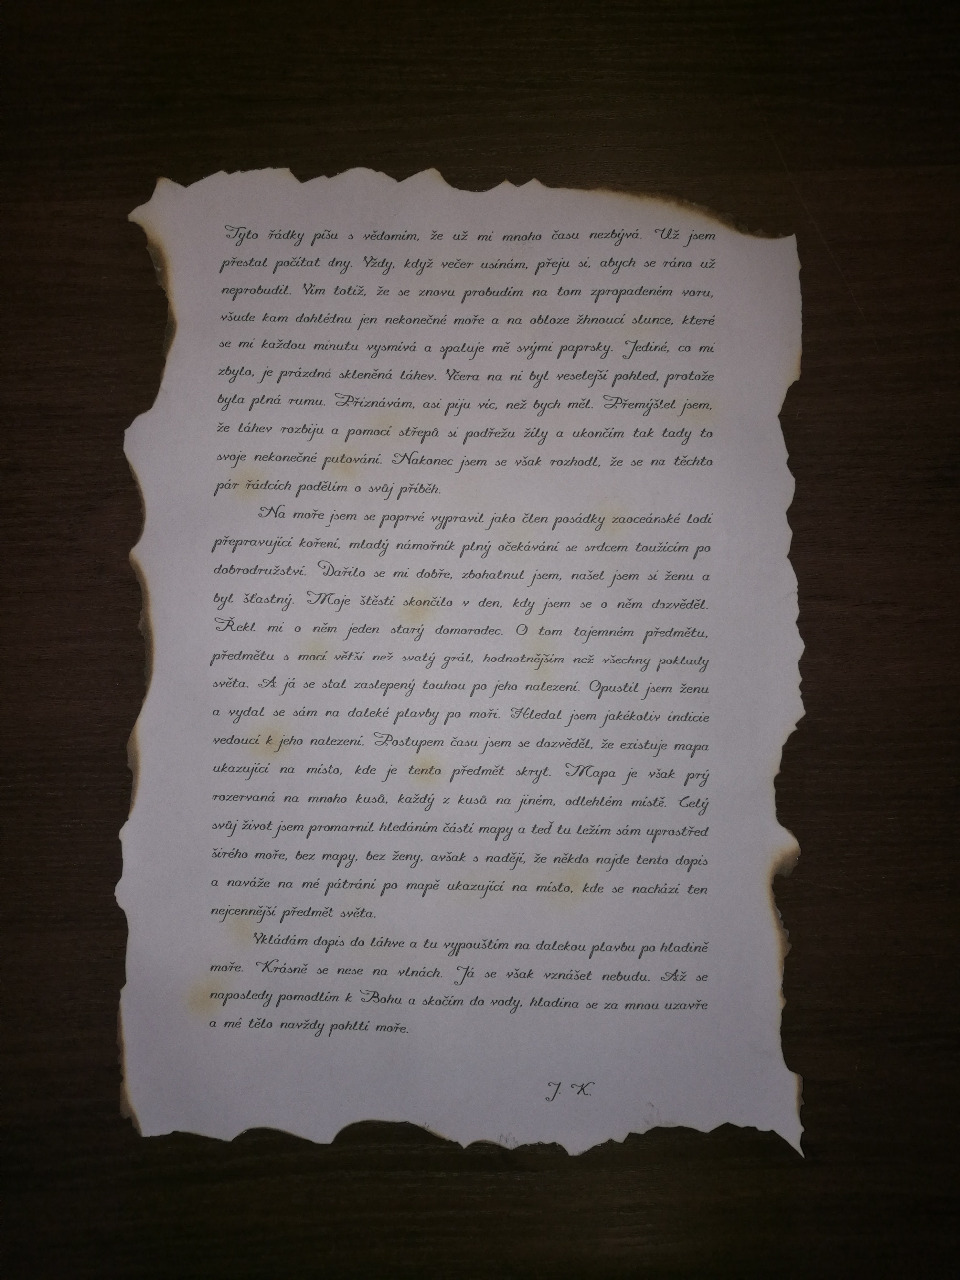 Tyto řádky píšu s vědomím, že už mi mnoho času nezbývá. Už jsem
přestal počítat dny. Vždy, když večer usínám, přeju si, abych se ráno už
neprobudil. Vím totiž, že se znovu probudím na tom zpropadeném voru,
všude kam dohlédnu jen nekonečné moře a na obloze žhnoucí slunce, které
se mi každou minutu vysmívá a spaluje mě svými paprsky. Jediné, co mi
zbylo, je prázdná skleněná láhev. Včera na ni byl veselejší pohled, protože
byla plná rumu. Přiznávám, asi piju víc, než bych měl. Přemýšlel jsem,
že láhev rozbiju a pomocí střepů si podřežu žíly a ukončím tak tady to
svoje nekonečné putování. Nakonec jsem se však rozhodl, že se na těchto
pár řádcích podělím o svůj příběh.
Na moře jsem se poprvé vypravil jako člen posádky zaoceánské lodi
přepravující koření, mladý námořník plný očekávání se srdcem toužícím po
dobrodružství. Dařilo se mi dobře, zbohatnul jsem, našel jsem si ženu a
byl šťastný. Moje štěstí skončilo v den, kdy jsem se o něm dozvěděl.
Řekl mi o něm jeden starý domorodec. O tom tajemném předmětu,
předmětu s mocí větší než svatý grál, hodnotnějším než všechny poklady
světa. A já se stal zaslepený touhou po jeho nalezení. Opustil jsem ženu
a vydal se sám na daleké plavby po moři. Hledal jsem jakékoliv indicie
vedoucí k jeho nalezení. Postupem času jsem se dozvěděl, že existuje mapa
ukazující na místo, kde je tento předmět skryt. Mapa je však prý
rozervaná na mnoho kusů, každý z kusů na jiném, odlehlém místě. Celý
svůj život jsem promarnil hledáním částí mapy a teď tu ležím sám uprostřed
širého moře, bez mapy, bez ženy, avšak s nadějí, že někdo najde tento dopis
a naváže na mé pátrání po mapě ukazující na místo, kde se nachází ten
nejcennější předmět světa.
Vkládám dopis do láhve a tu vypouštím na dalekou plavbu po hladině
moře. Krásně se nese na vlnách. Já se však vznášet nebudu. Až se
naposledy pomodlím k Bohu a skočím do vody, hladina se za mnou uzavře
a mé tělo navždy pohltí moře.
J. K.